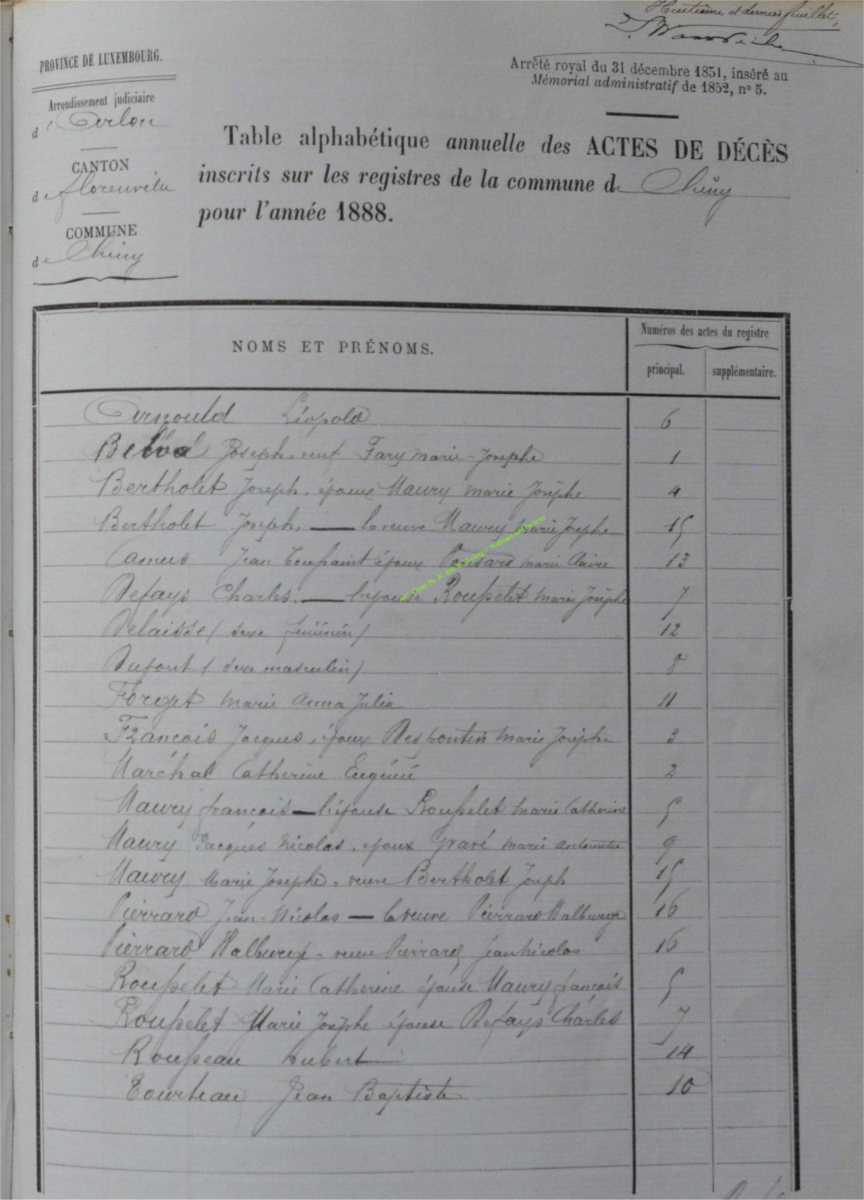 Huitième et dernier feuillet,
PROVINCE DE LUXEMBOURG.
Arrêté royal du 31 décembre 1851, inséré au
Mémorial administratif de 1852, nº 5.
Arrondissement judiciaire
d'Arlon
CANTON
de florenville
COMMUNE
de Chiny
Table alphabétique annuelle des ACTES DE DÉCÈS
inscrits sur les registres de la commune de Chiny
pour l'année 1888.
NOMS ET PRÉNOMS.
Numéros des actes du registre
principal.
supplémentaire.
Arnould Léopold 6
Joseph veuf Fary marie-Josephe 1
Bertholet Joseph, époux Maury marie Josèphe 4
Bertholet Joseph, — la veuve Maury marie Josephe 15
Camus Jean Toussaint époux Ponsard marie Claire 13
Defays Charles. — l'épouse Rousselet Marie Josèphe 7
Delaisse (sexe féminin) 12
Dufont (sexe masculin) 8
Forget marie Anna Julia 11
François Jacques, époux marie Josèphe 3
Maréchal Catherine Eugénie 2
Maury françois — l'épouse Rousselet marie Catherine 5
Maury Jacques Nicolas, époux Gravé marie antoinette 9
Maury Marie Josephe, veuve Bertholet Joseph 15
Piérrard Jean-Nicolas — la veuve Piérrard Walburge 16
Piérrard Walburge, veuve Pierrard jean nicolas 16
Rousselet Marie Catherine épouse Maury françois 5
Rousselet Marie Josèphe épouse Defays Charles 7
Rousseau hubert 14
Tourteau Jean Baptiste 10